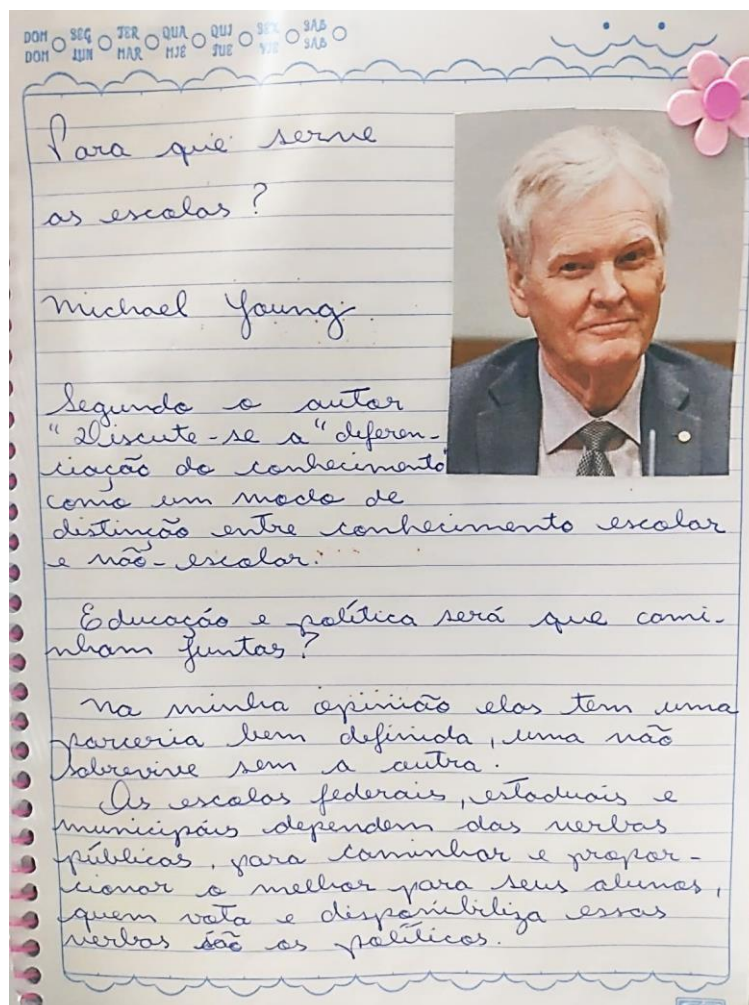 DOM SEG TER QUA QUI SEX SAB
DOM LUN MAR MIE JUE VIE SAB
Para que serve
as escolas?
Michael Young.
Segundo o autor
"Discute-se a "diferen-
ciação do conhecimento"
como um modo de
distinção entre conhecimento escolar
e não-escolar.
Educação e política será que cami-
nham juntas?
Na minha opinião elas tem uma
parceria bem definida, uma não
sobrevive sem a outra.
As escolas federais, estaduais e
municipáis dependem das verbas
públicas, para caminhar e propor-
cionar o melhor para seus alunos,
quem vota e disponibiliza essas
verbas são os políticos.